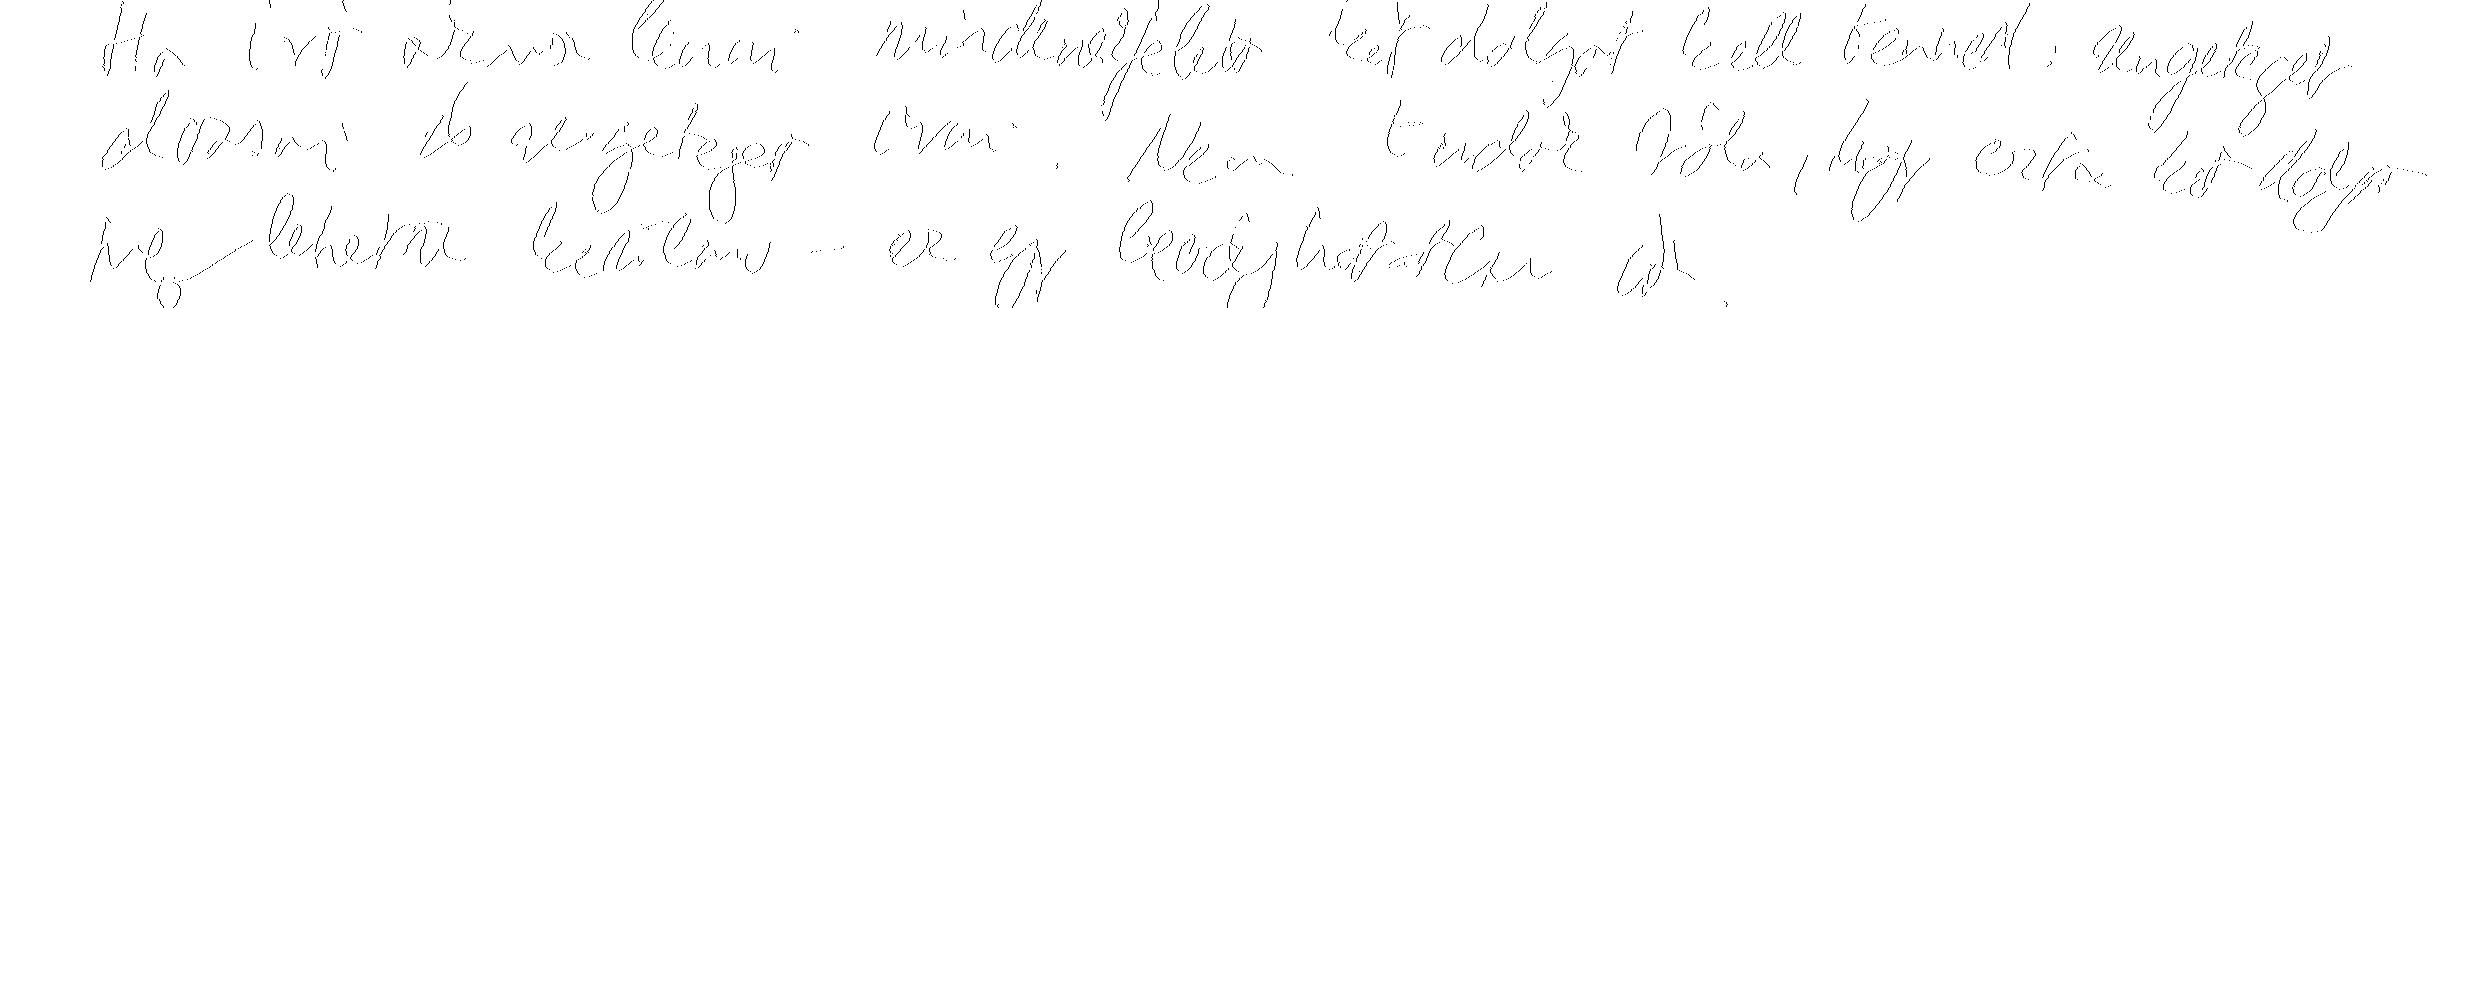 Ha író akarsz lenni mindenekelőtt két dolgot kell tenned: rengeteget
olvasni és rengeteget írni. Nem tudok róla, hogy ezt a két dolgot
meg lehetne kerülni - ez egy leradhatatlan út.